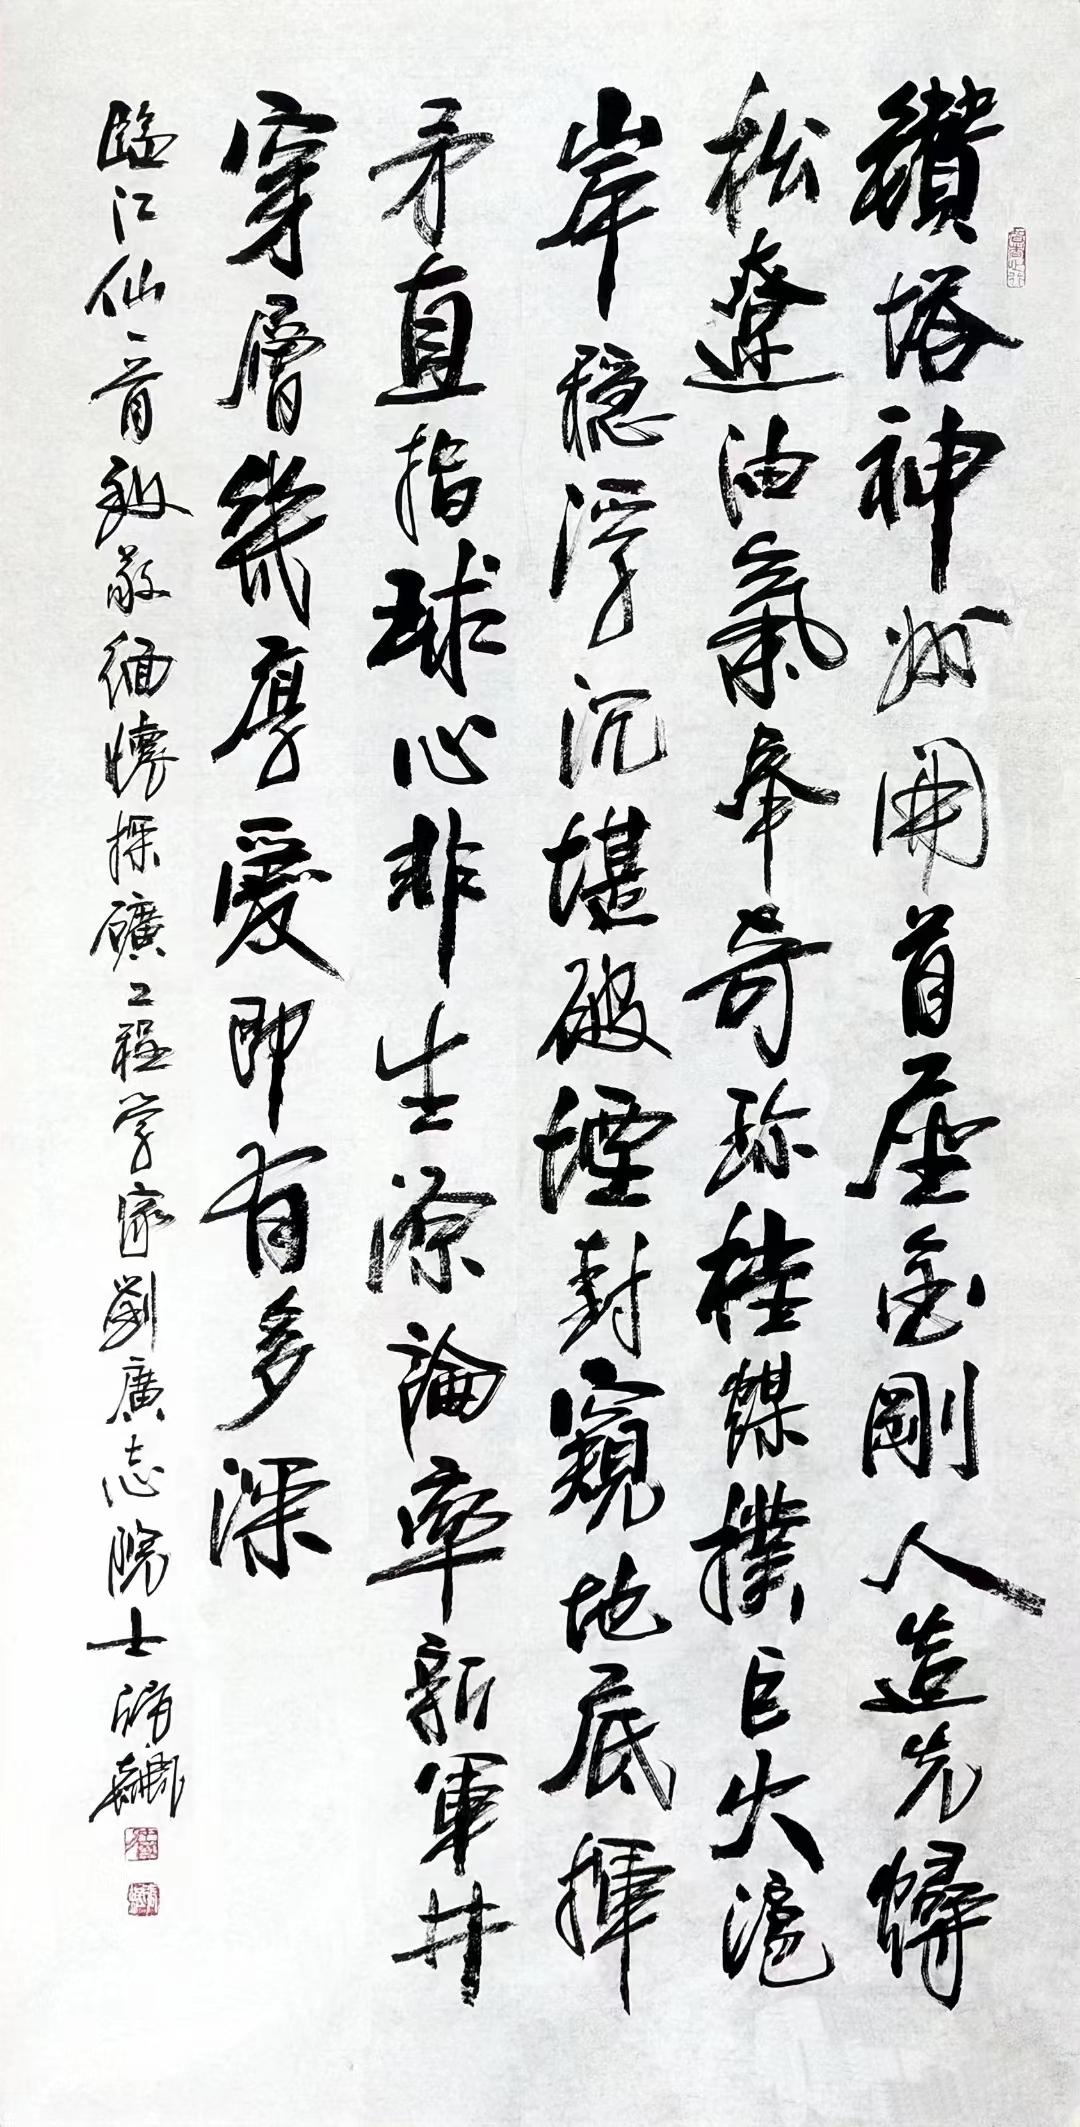 鑽塔神州開首座金剛人造先
松遼油氣奉奇珍桂煤撲巨火滬
岸穩浮沉堪破堙封窺地底揮
矛直指球心非生源論率新軍井
穿層幾厚愛即有多深
臨江仙一首致敬緬懷探礦工程學家劉廣志院士